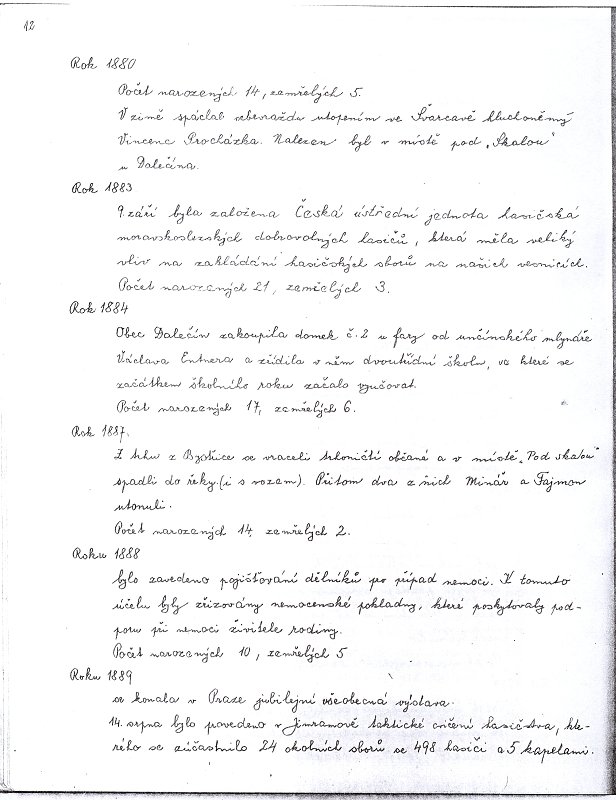 12
Rok 1880
Počet narozených 14, zemřelých 5.
V zimě spáchal sebevraždu utopením ve Švarcavě hluchoněmý
Vincenc Procházka. Nalezen byl v místě pod "Skalou"
u Dalečína.
Rok 1883
9 září byla založena Česká ústřední jednota hasičská
moravskoslezských dobrovolných hasičů, která měla veliký
vliv na zakládání hasičských sborů na našich vesnicích.
Počet narozených 21, zemřelých 3.
Rok 1884
Obec Dalečín zakoupila domek č. 2 u fary od unčínského mlynáře
Václava Entnera a zřídila v něm dvoutřídní školu, ve které se
začátkem školního roku začalo vyučovat.
Počet narozených 17, zemřelých 6.
Rok 1887.
Z trhu z Bystřice se vraceli občané a v místě "Pod skalou"
spadli do řeky (i s vozem). Přitom dva z nich Minář a Fajmon
utonuli.
Počet narozených 14, zemřelých 2.
Roku 1888
bylo zavedeno pojišťování dělníků pro případ nemoci. K tomuto
účelu byly zřizovány nemocenské pokladny, které poskytovaly pod-
poru při nemoci živitele rodiny.
Počet narozených 10, zemřelých 5
Roku 1889
se konala v Praze jubilejní všeobecná výstava.
14. srpna bylo provedeno v Jimramově taktické cvičení hasičstva, kte-
rého se zúčastnilo 24 okolních sborů se 498 hasiči a 5 kapelami.